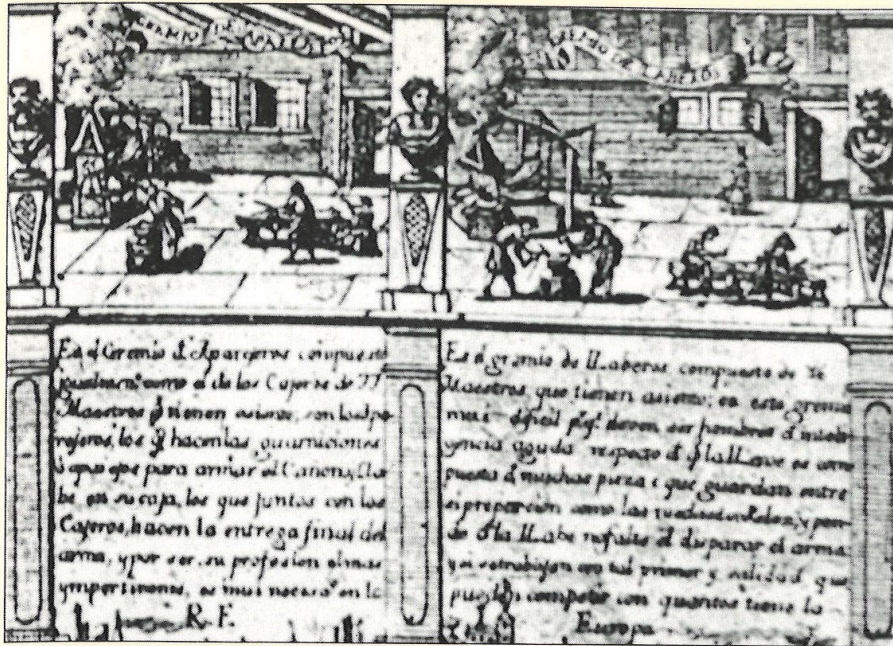 GREMIO DE APAREJEROS
GREMIO DE LLABEROS
Es el Gremio d. Aparejeros compuesto
como el de los Cajeros de 77
Maestros q̃ tienen asiento; son los Apa-
rejeros, los q̃ hacen las guarniciones
ô aparejos para armar el Cañon, y Lla-
be en su caja, los que juntos con los
Cajeros, hacen la entrega final del
arma, y por ser su profesion
ympertinente, es mui en la
R. F.
Es el gremio de LLaberos compuesto de
Maestros, que tienen asiento; es este gremio
mas dificil p.r q.e deven ser hombres d. inteli-
gencia aguda respecto d. q̃ la LLave es com-
puesta d. muchas piezas que guardan entre
si proporcion como las ruedas de un Relox, y pen-
de d. la LLabe no falte el disparar el arma
y si se trabajan con tal primor y calidad, que
pueden competir con quantos tiene la
Europa